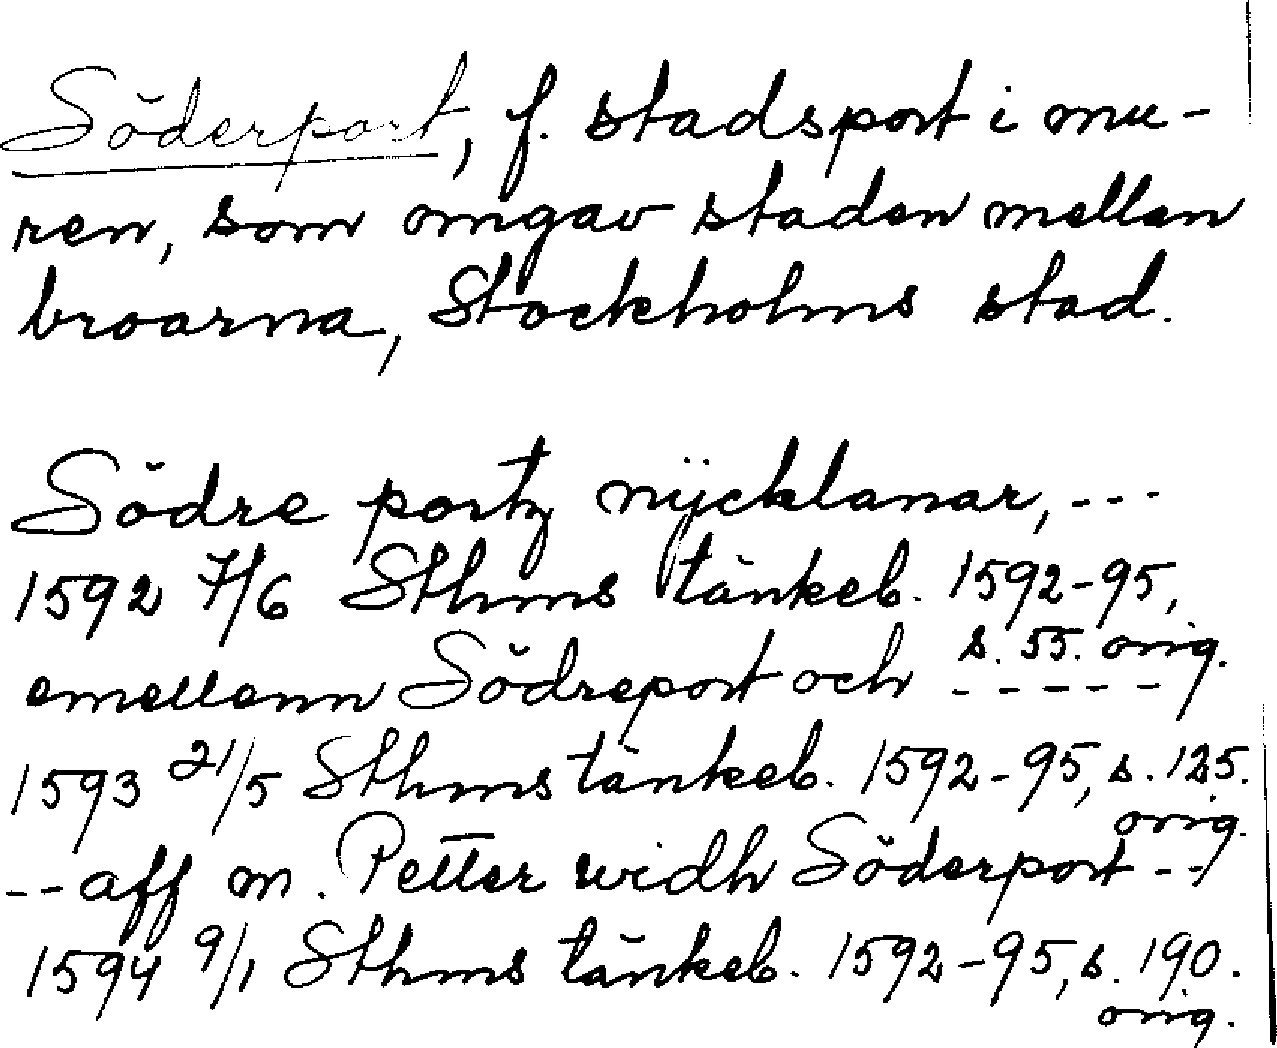 Söderport, f. stadsport i mu-
ren, som omgav staden mellan
broarna, Stockholms stad.
Södre portz nÿcklanar, ---
1592 7/6 Sthms tänkeb. 1592-95,
s. 55. orig.
emellenn Södreport och -----
1593 21/5 Sthms tänkeb. 1592-95, s. 125.
orig.
-- aff m. Petter widh Söderport --
1594 9/1 Sthms tänkeb. 1592-95, s. 190.
orig.